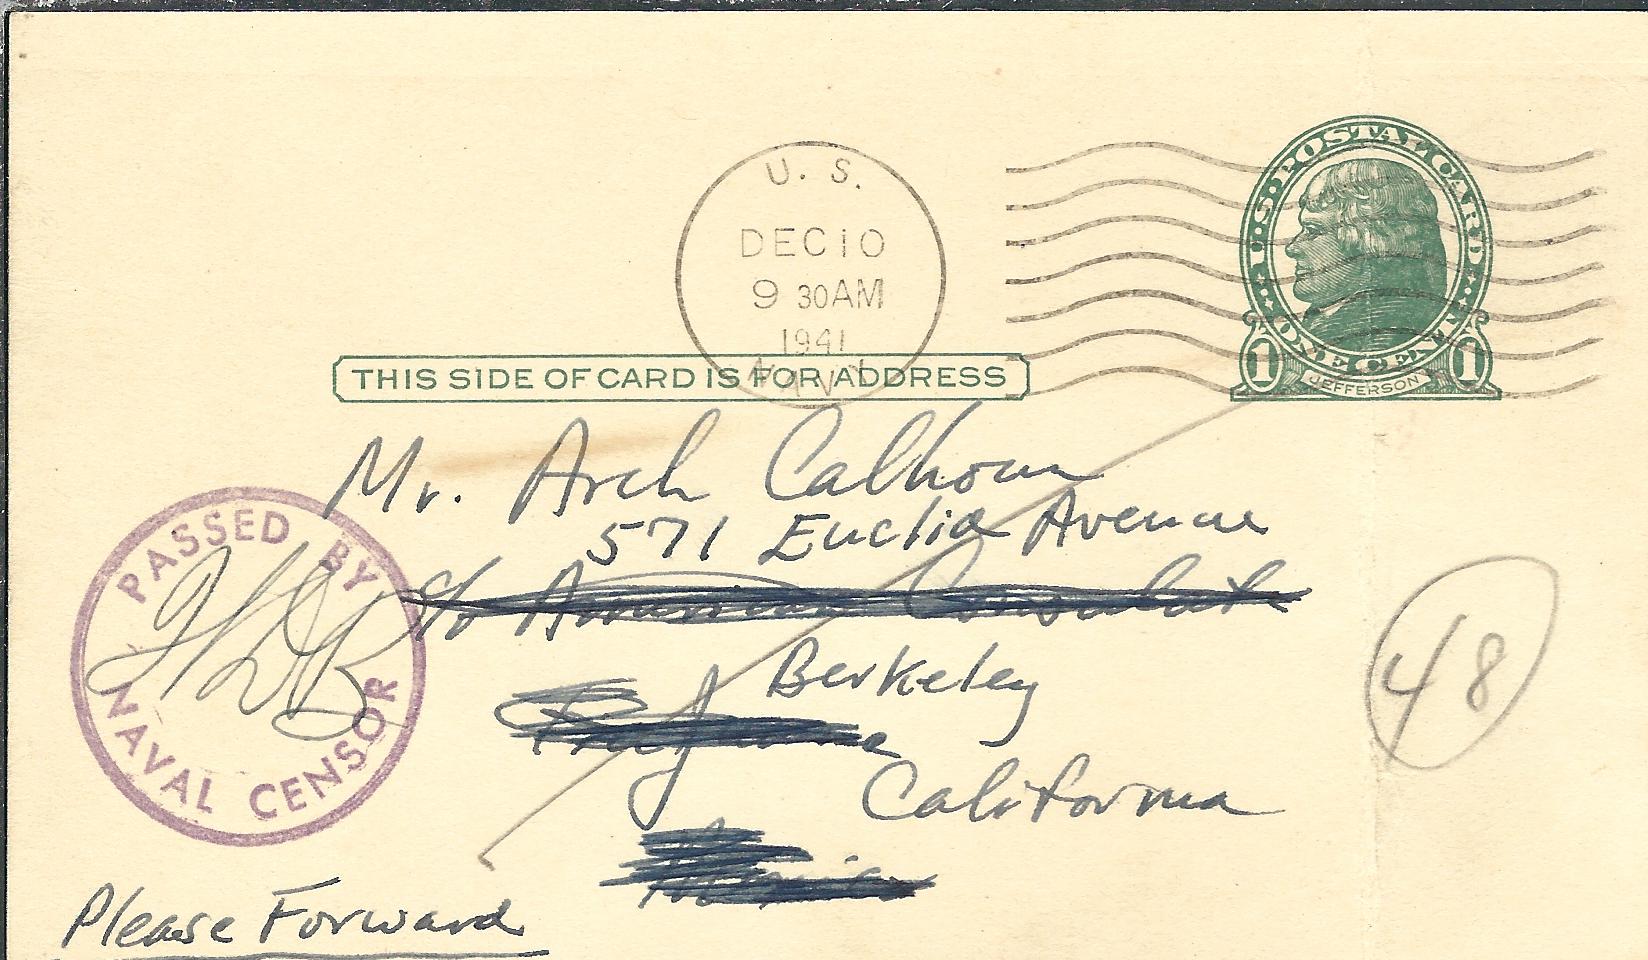 U. S.
DEC 10
9 30 AM
1941
NAVY
U.S. POSTAL CARD
ONE CENT
1 1
JEFFERSON
THIS SIDE OF CARD IS FOR ADDRESS
Mr. Arch Calhoun
571 Euclid Avenue
c/o American Consulate
Berkeley
California
PASSED BY
NAVAL CENSOR
48
Please Forward